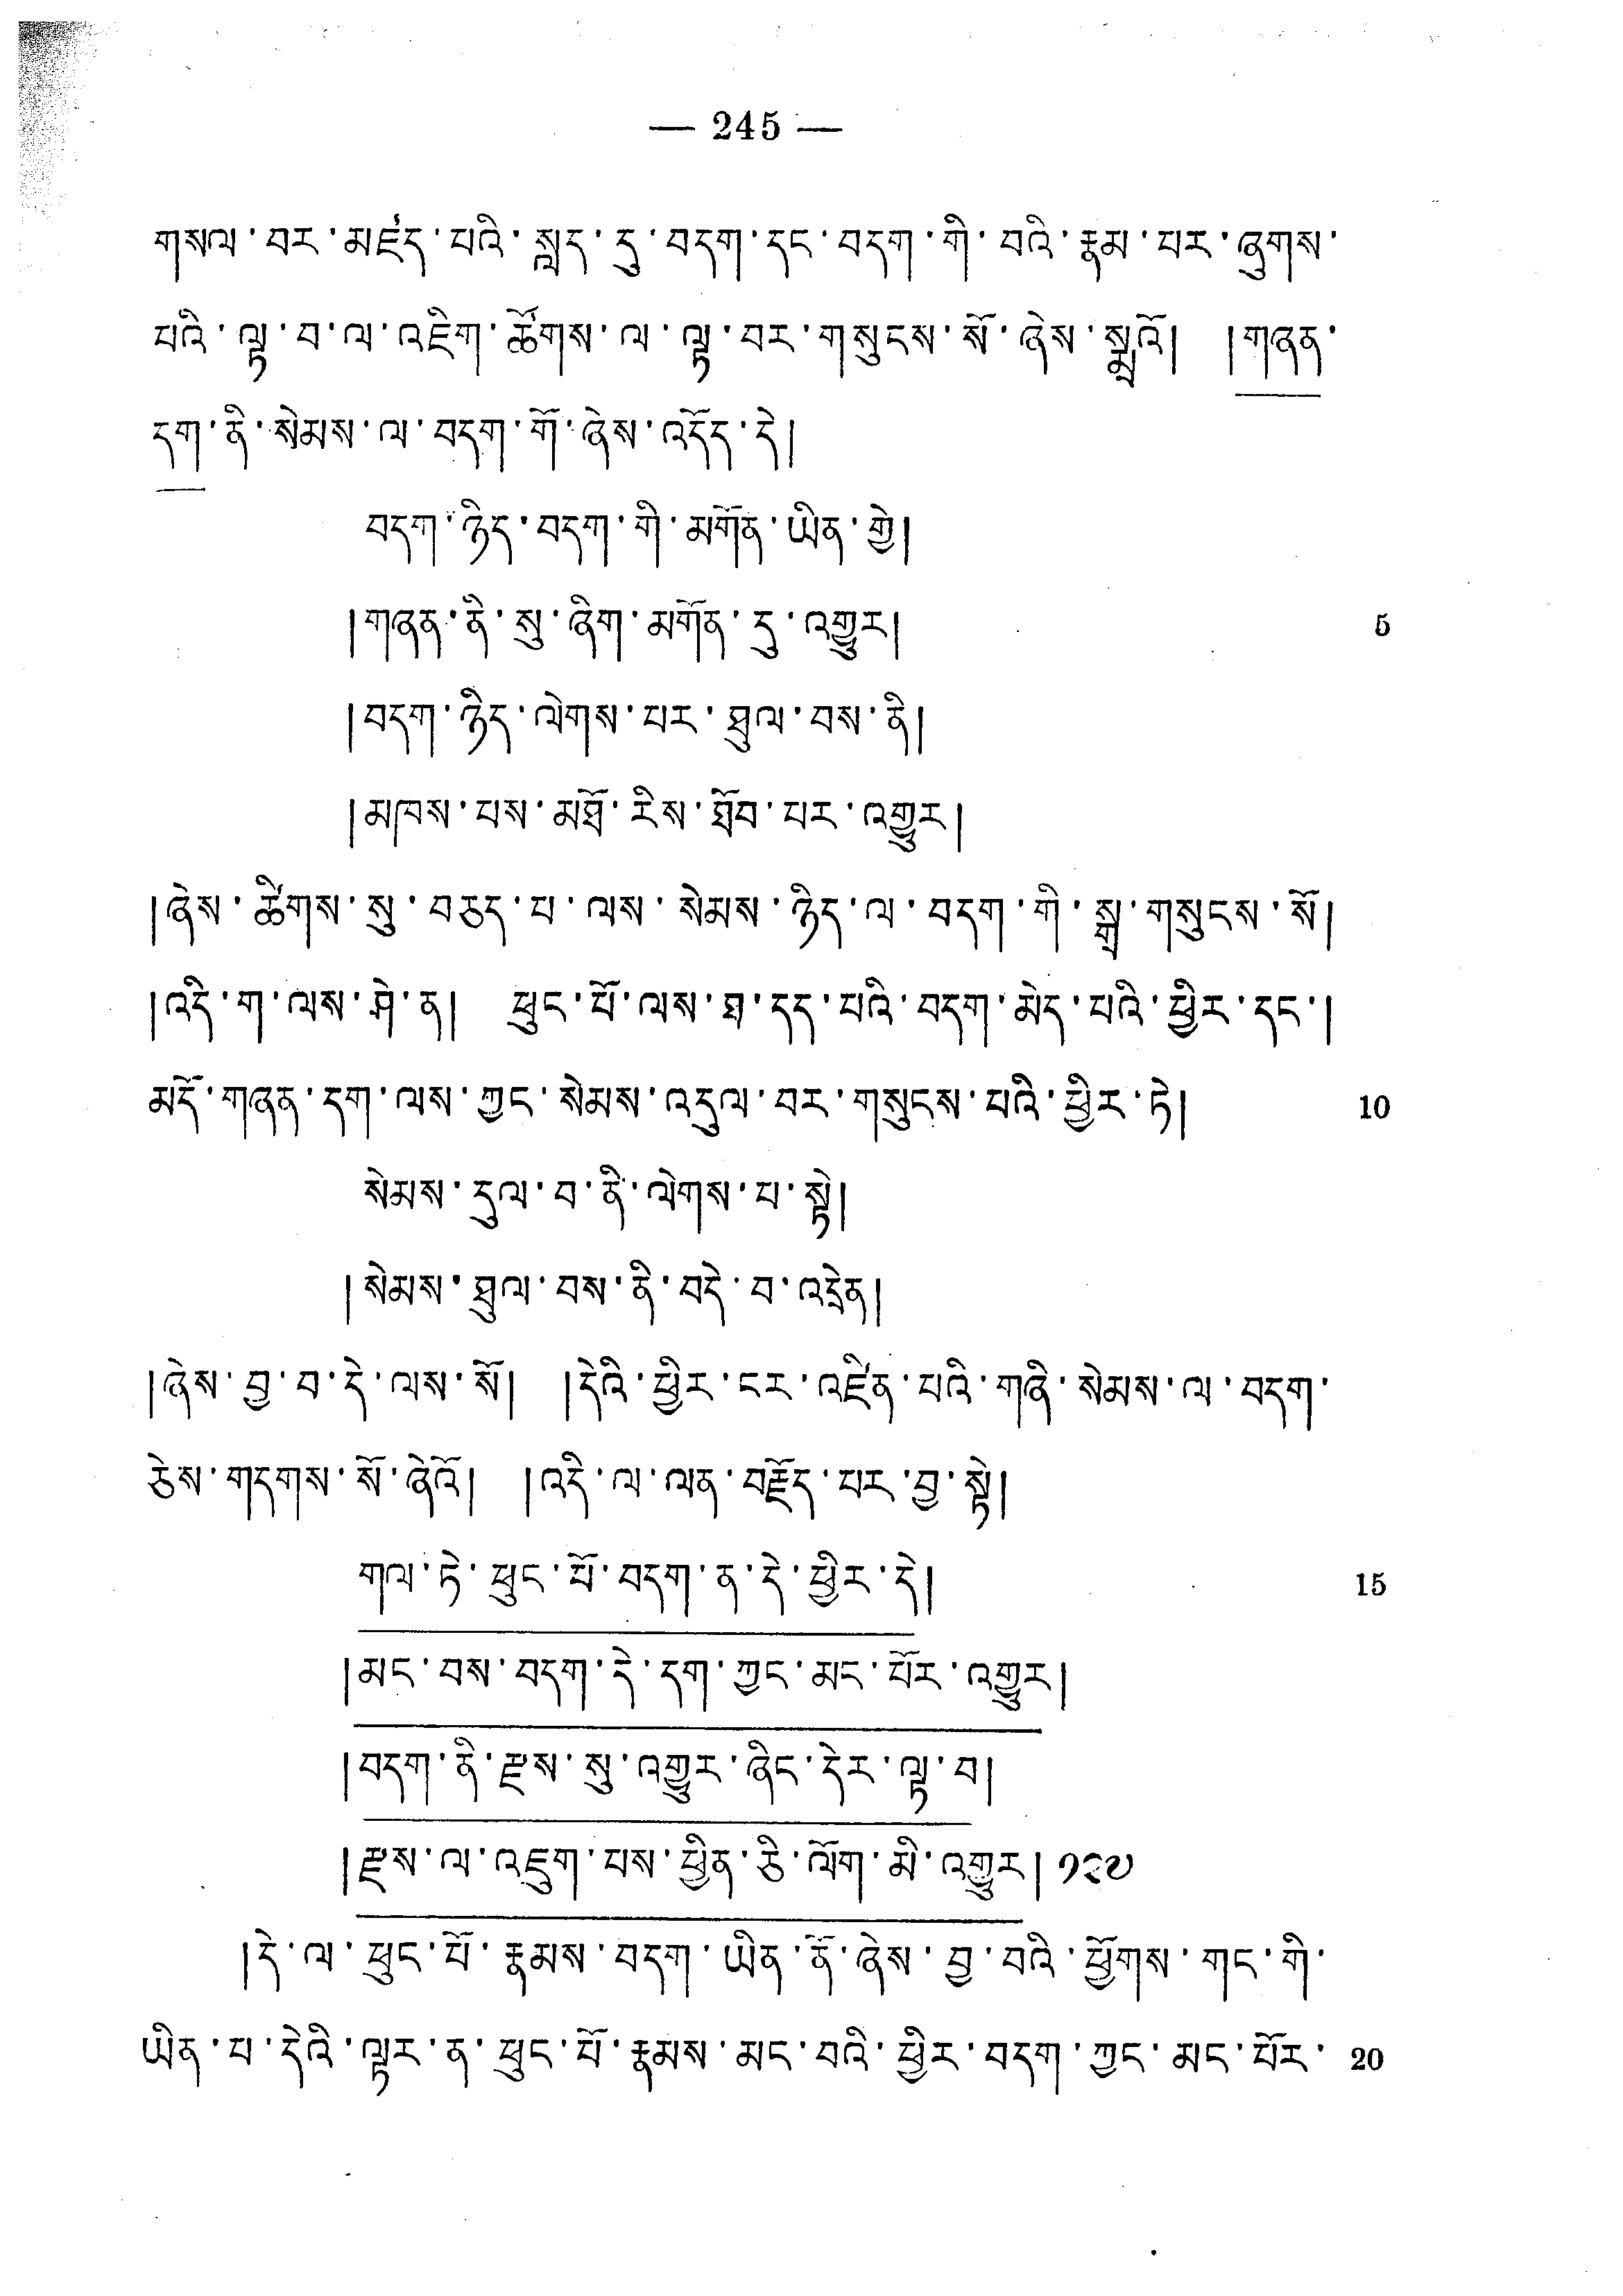 — 245 —
གསལ་བར་མཛད་པའི་སླད་དུ་བདག་དང་བདག་གི་བའི་རྣམ་པར་ཞུགས་
པའི་ལྟ་བ་ལ་འཇིག་ཚོགས་ལ་ལྟ་བར་གསུངས་སོ་ཞེས་སྨྲའོ། །གཞན་
དག་ནི་སེམས་ལ་བདག་གོ་ཞེས་འདོད་དེ།
བདག་ཉིད་བདག་གི་མགོན་ཡིན་གྱི།
།གཞན་ནི་སུ་ཞིག་མགོན་དུ་འགྱུར།	5
།བདག་ཉིད་ལེགས་པར་ཐུལ་བས་ནི།
།མཁས་པས་མཐོ་རིས་ཐོབ་པར་འགྱུར།
།ཞེས་ཚིགས་སུ་བཅད་པ་ལས་སེམས་ཉིད་ལ་བདག་གི་སྒྲ་གསུངས་སོ།
།འདི་ག་ལས་ཤེ་ན། ཕུང་པོ་ལས་ཐ་དད་པའི་བདག་མེད་པའི་ཕྱིར་དང་།
མདོ་གཞན་དག་ལས་ཀྱང་སེམས་འདུལ་བར་གསུངས་པའི་ཕྱིར་ཏེ།	10
སེམས་དུལ་བ་ནི་ལེགས་པ་སྟེ།
།སེམས་ཐུལ་བས་ནི་བདེ་བ་འདྲེན།
།ཞེས་བྱ་བ་དེ་ལས་སོ། །དེའི་ཕྱིར་ངར་འཛིན་པའི་གཞི་སེམས་ལ་བདག་
ཅེས་གདགས་སོ་ཞེའོ། །འདི་ལ་ལན་བརྗོད་པར་བྱ་སྟེ།
གལ་ཏེ་ཕུང་པོ་བདག་ན་དེ་ཕྱིར་དེ།	15
།མང་བས་བདག་དེ་དག་ཀྱང་མང་པོར་འགྱུར།
།བདག་ནི་རྫས་སུ་འགྱུར་ཞིང་དེར་ལྟ་བ།
།རྫས་ལ་འཇུག་པས་ཕྱིན་ཅི་ལོག་མི་འགྱུར། ༡༢༧
།དེ་ལ་ཕུང་པོ་རྣམས་བདག་ཡིན་ནོ་ཞེས་བྱ་བའི་ཕྱོགས་གང་གི་
ཡིན་པ་དེའི་ལྟར་ན་ཕུང་པོ་རྣམས་མང་བའི་ཕྱིར་བདག་ཀྱང་མང་པོར་	20